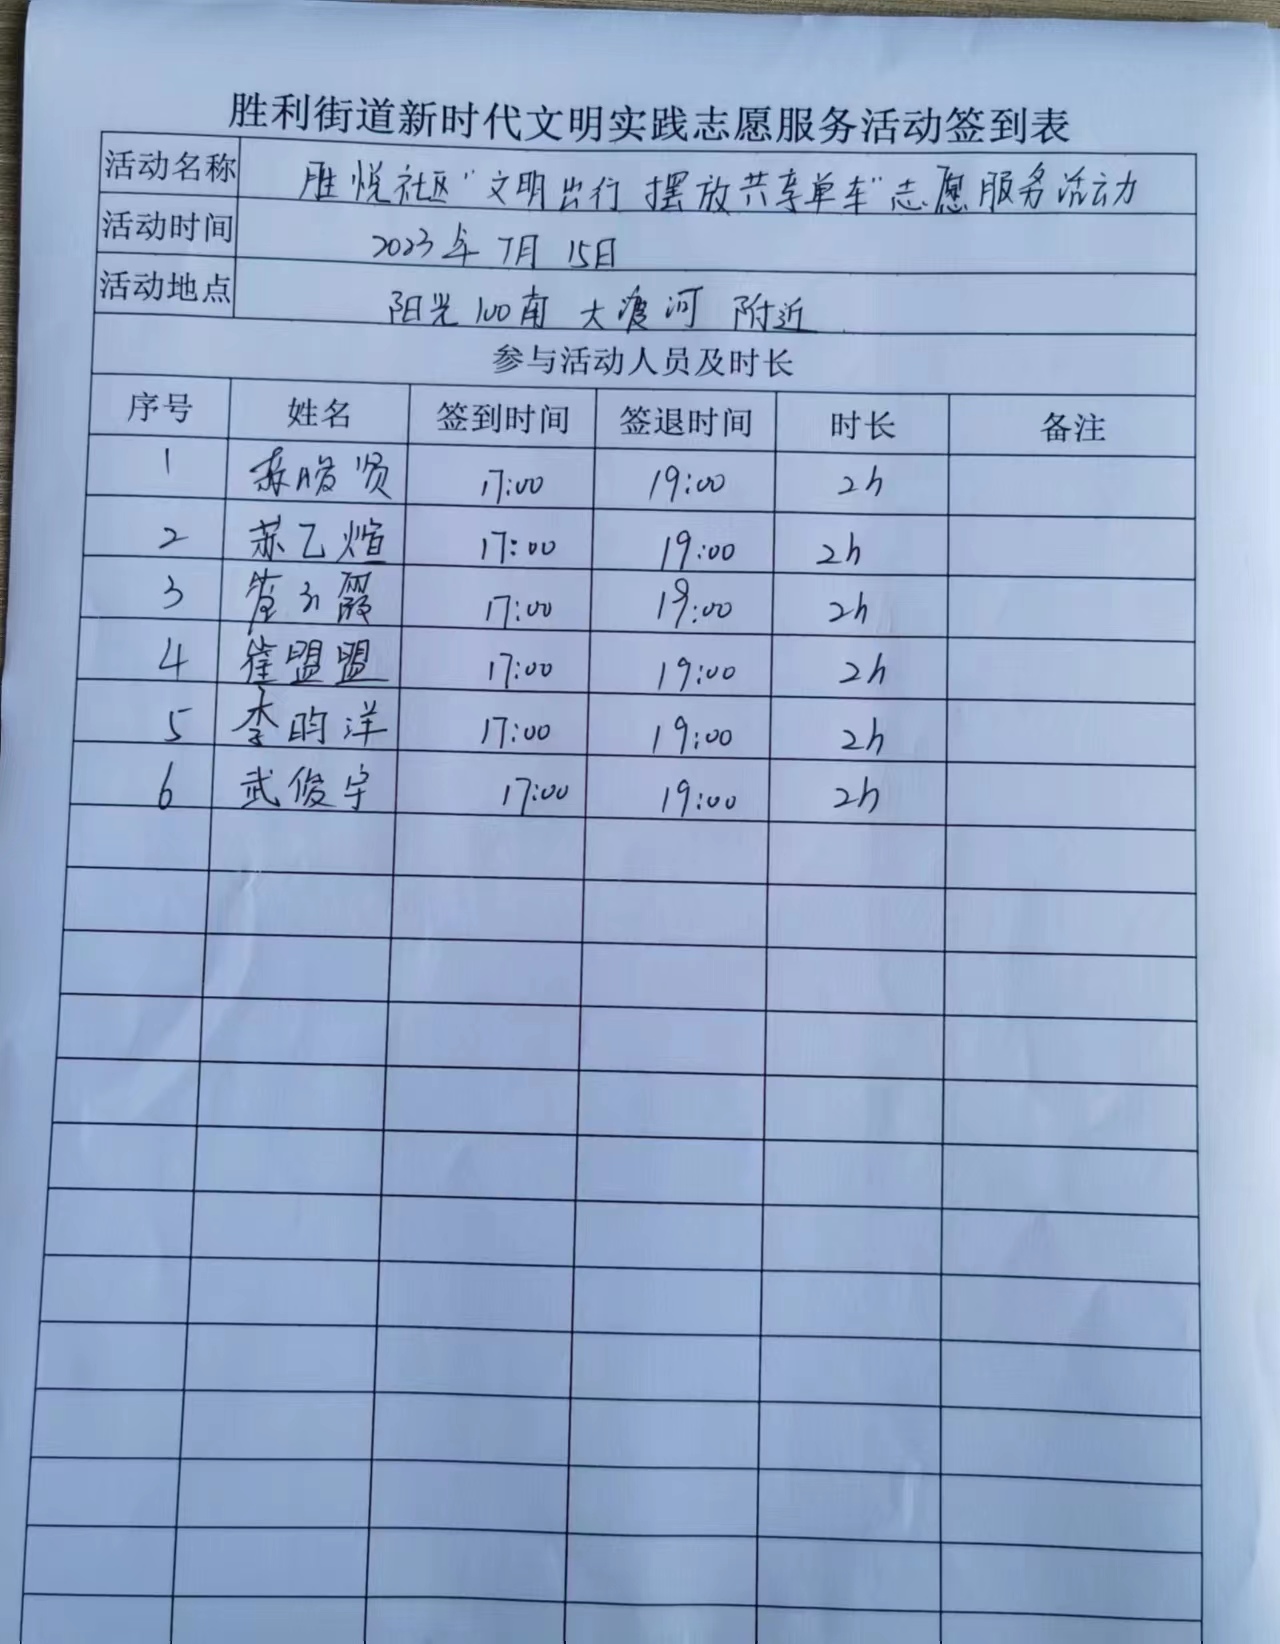 胜利街道新时代文明实践志愿服务活动签到表
活动名称 胜悦社区"文明出行 摆放共享单车"志愿服务活动
活动时间 2023年 7月 15日
活动地点 阳光100南 大渡河 附近
参与活动人员及时长
序号 姓名 签到时间 签退时间 时长 备注
1 17:00 19:00 2h
2 苏乙煊 17:00 19:00 2h
3 17:00 19:00 2h
4 崔盟盟 17:00 19:00 2h
5 李昀洋 17:00 19:00 2h
6 武俊宇 17:00 19:00 2h